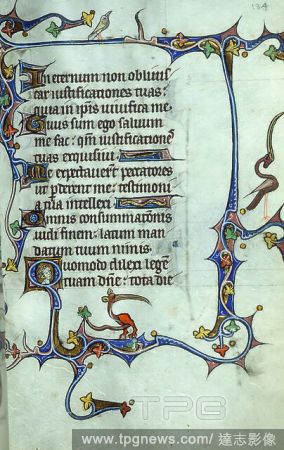 184
In eternum non obliuis
car iustificationes tuas:
quia in ipsis uiuifica me.
Tuus sum ego saluum
me fac: qm iustificationes
tuas exquisiui.
Me expectauerunt peccatores
ut perderent me: testimoni
a tua intellexi.
Omnis consummationis
uidi finem: latum man
datum tuum nimis.
Quomodo dilexi legem
tuam dne: tota die
TPG
www.tpgnews.com/達志影像